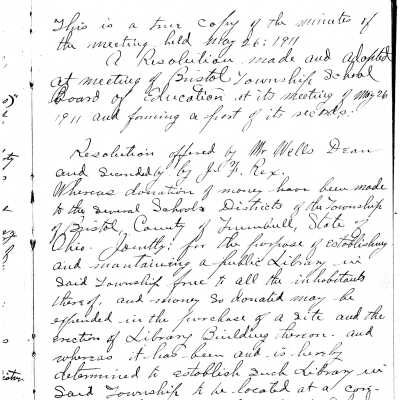 This is a true copy of the minutes of
the meeting held May 26: 1911
A Resolution made and adopted
at meeting of Bristol Township School
Board of Education at its meeting of May 26
1911 and forming a part of its records.
Resolution offered by Mr Wells Dean
and Seconded by J. F. Rex.
Whereas donation of money have been made
to the several Schools Districts of the Township
of Bristol, County of Trumbull, State of
Ohio. Jointly: for the purpose of establishing
and maintaining a public Library in
Said Township free to all the inhabitants
thereof, and money so donated may be
expended in the purchase of a site and the
erection of Library Building thereon. and
whereas it has been and is hereby
determined to establish such Library in
Said Township to be located at a con-